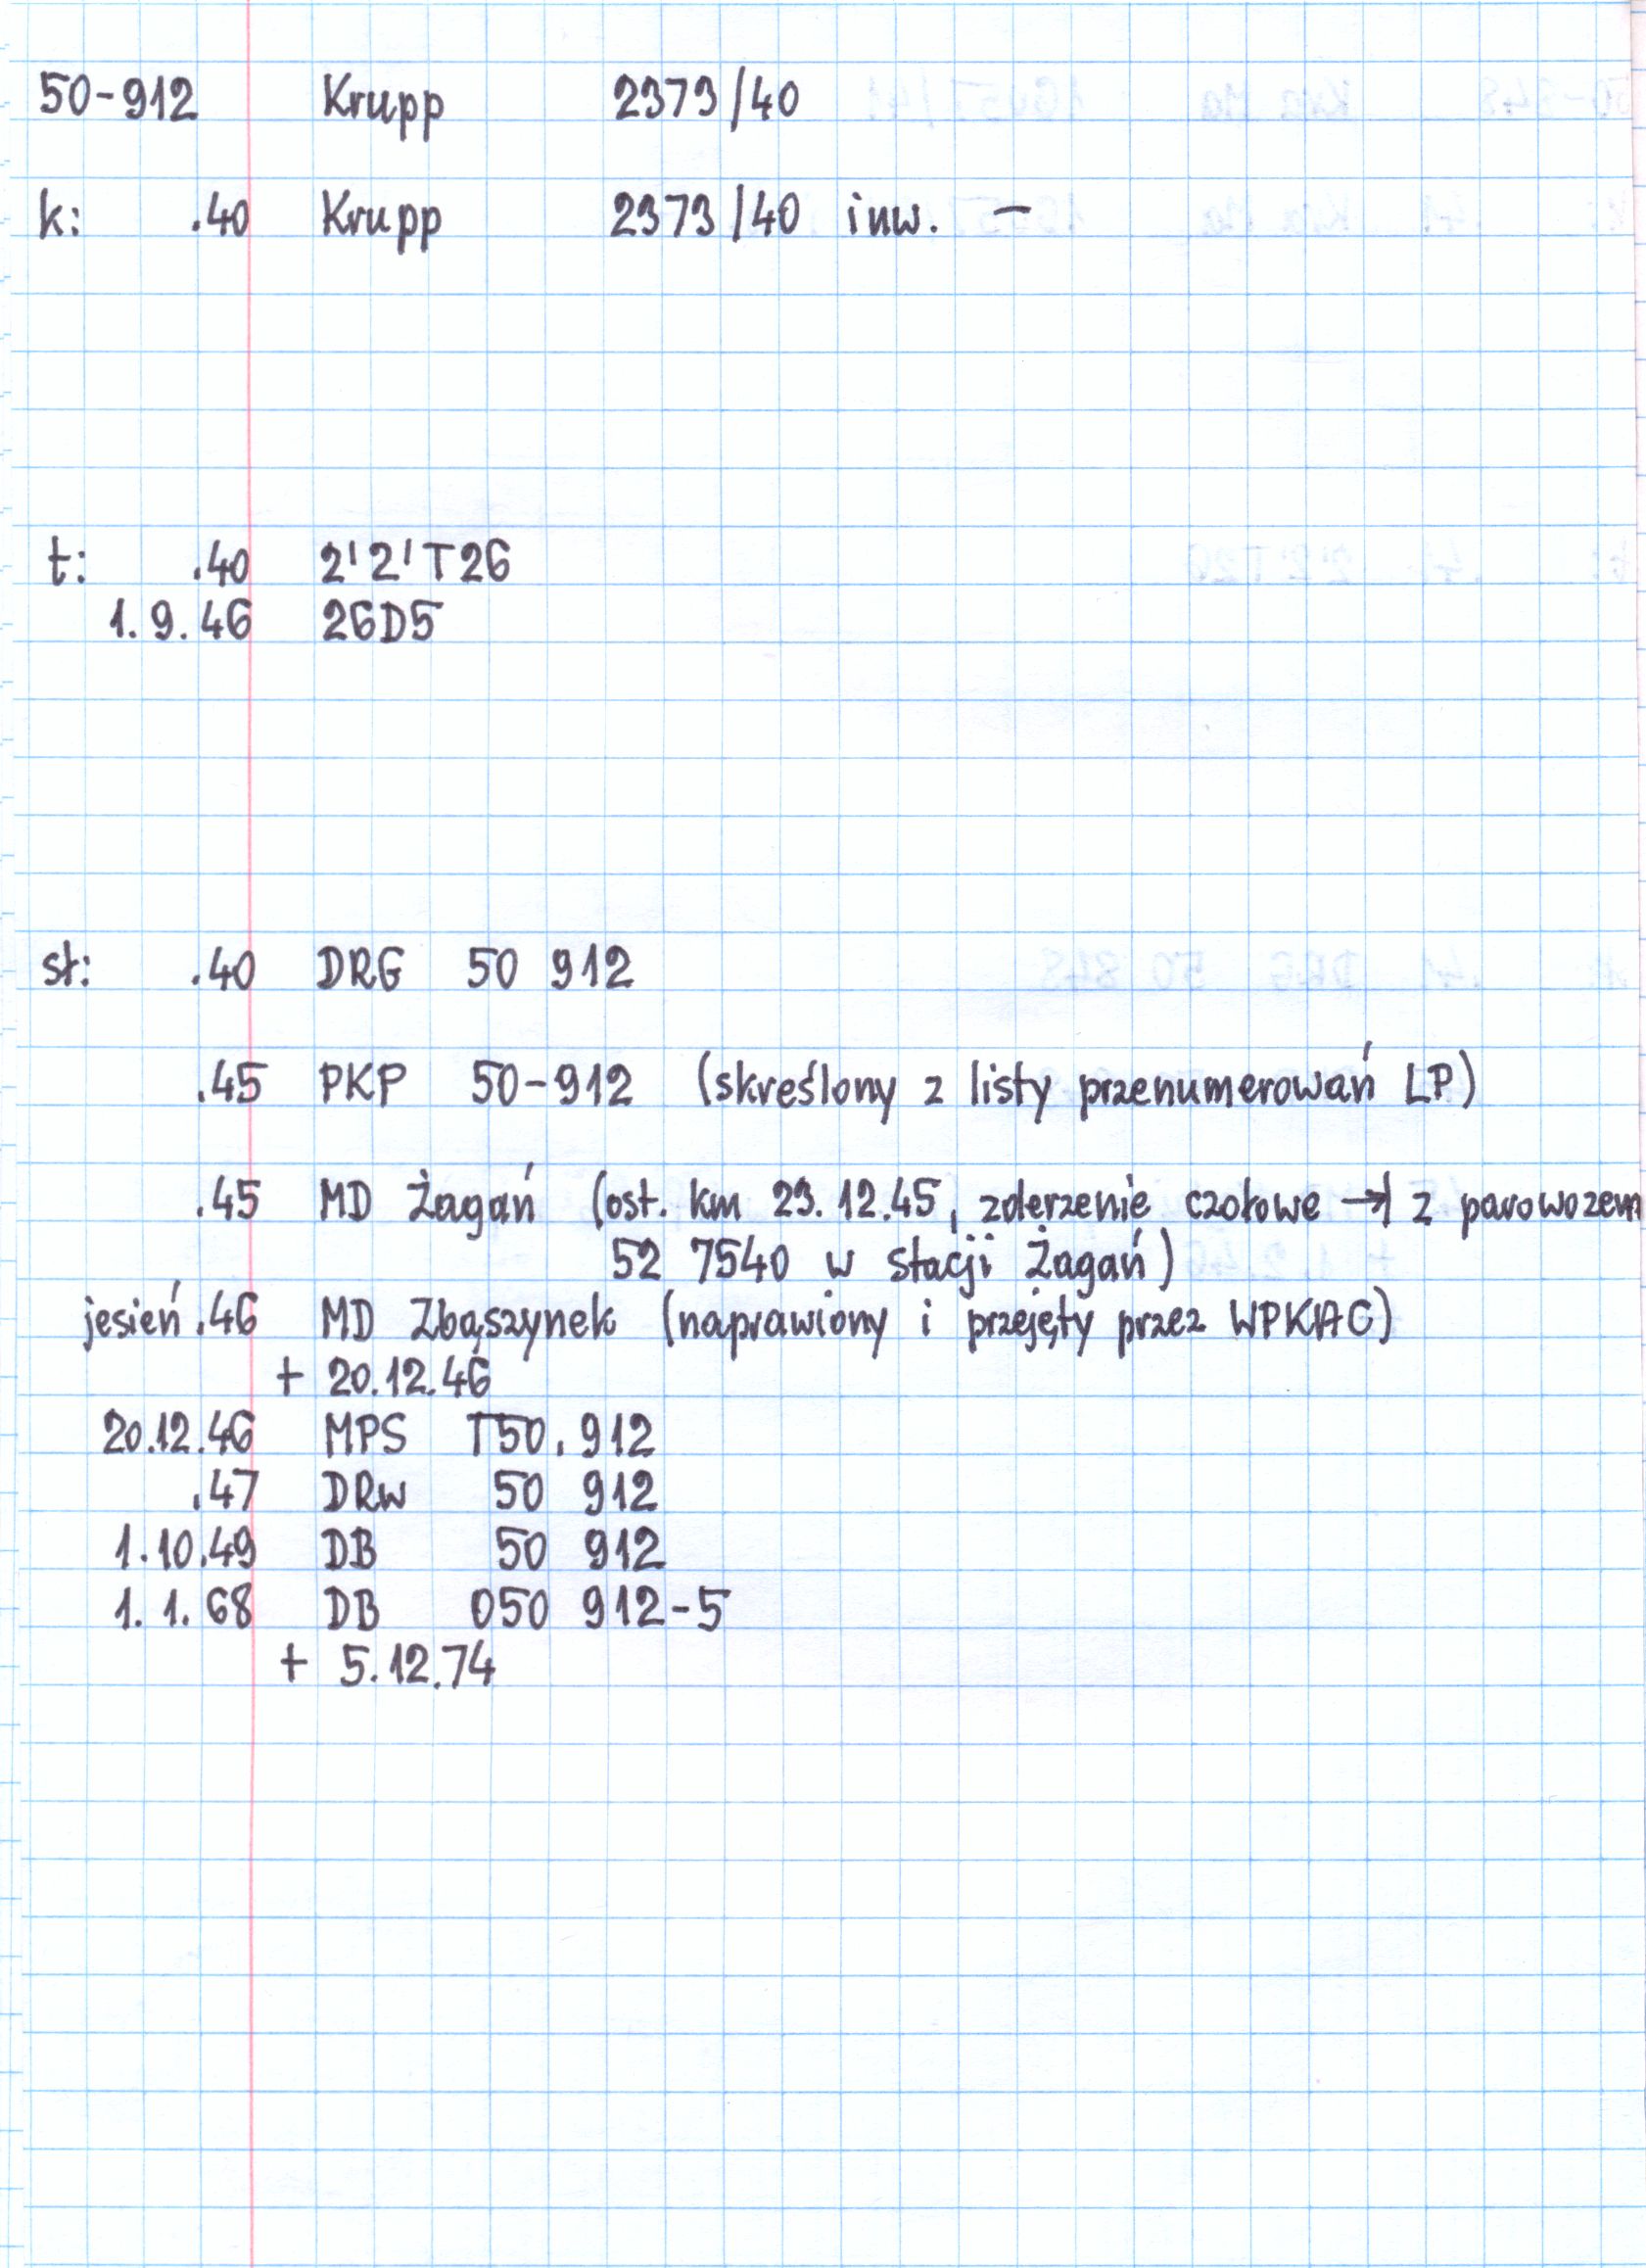 50-912 Krupp 2373/40
k: .40 Krupp 2373/40 inw. –
t: .40 2'2'T26
1.9.46 26D5
st: .40 DRG 50 912
.45 PKP 50-912 (skreślony z listy przenumerowań LP)
.45 MD Żagań (ost. km 23.12.45, zderzenie czołowe →| z parowozem
52 7540 w stacji Żagań)
jesień .46 MD Zbąszynek (naprawiony i przejęty przez WPKAC)
+ 20.12.46
20.12.46 MPS T50.912
.47 DRw 50 912
1.10.49 DB 50 912
1.1.68 DB 050 912-5
+ 5.12.74